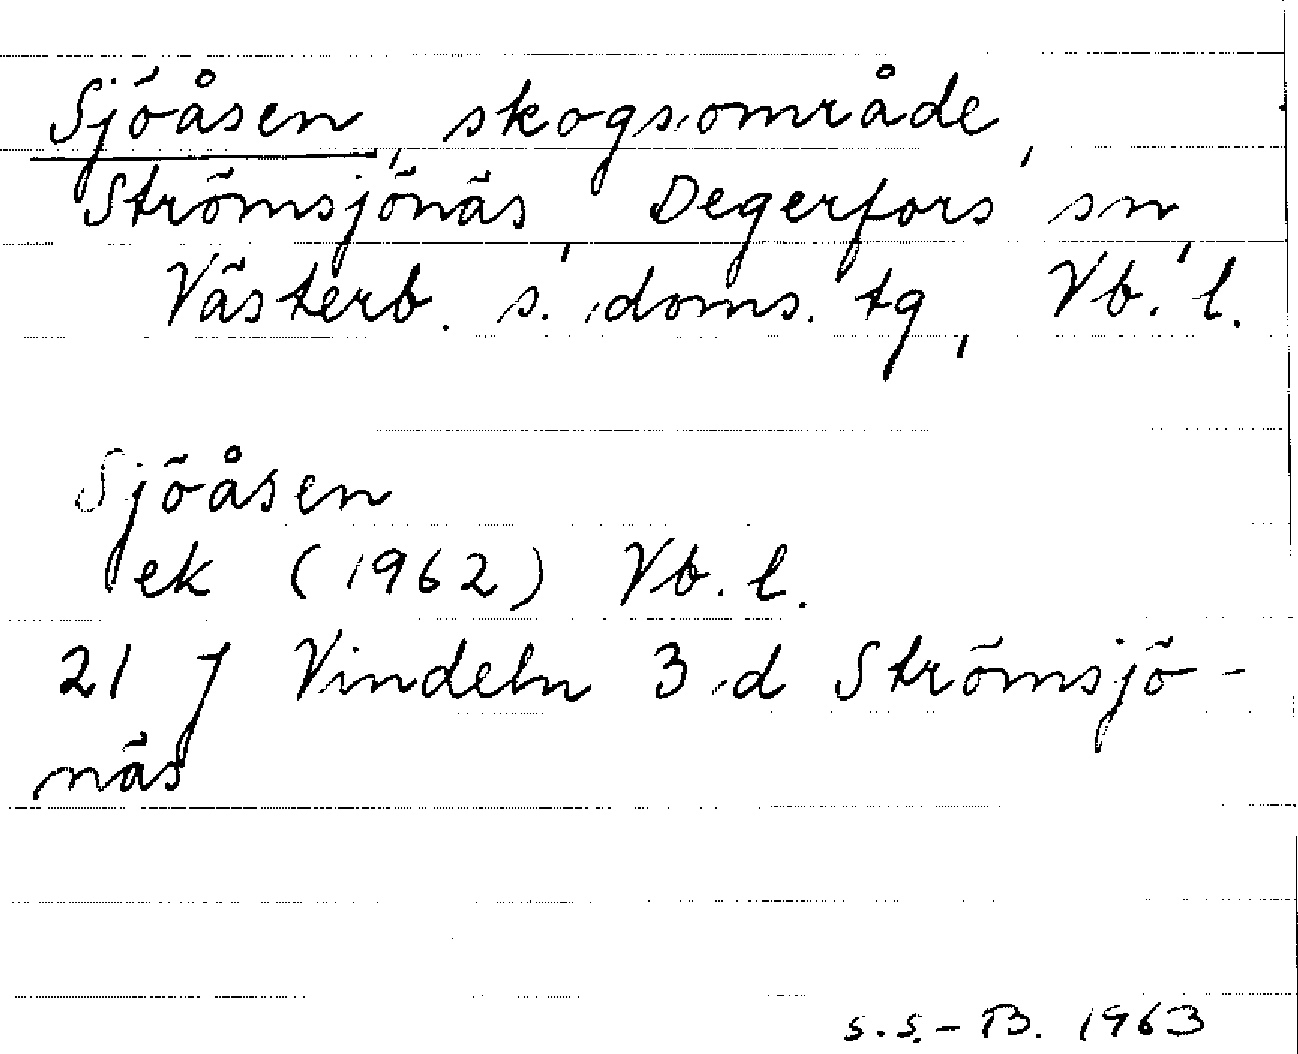 Sjöåsen, skogsområde,
Strömsjönäs, Degerfors sn,
Västerb. s. doms. tg, Vb. l.
Sjöåsen
ek (1962) Vb. l.
21 J Vindeln 3 d Strömsjö-
näs
S.S.-B. 1963